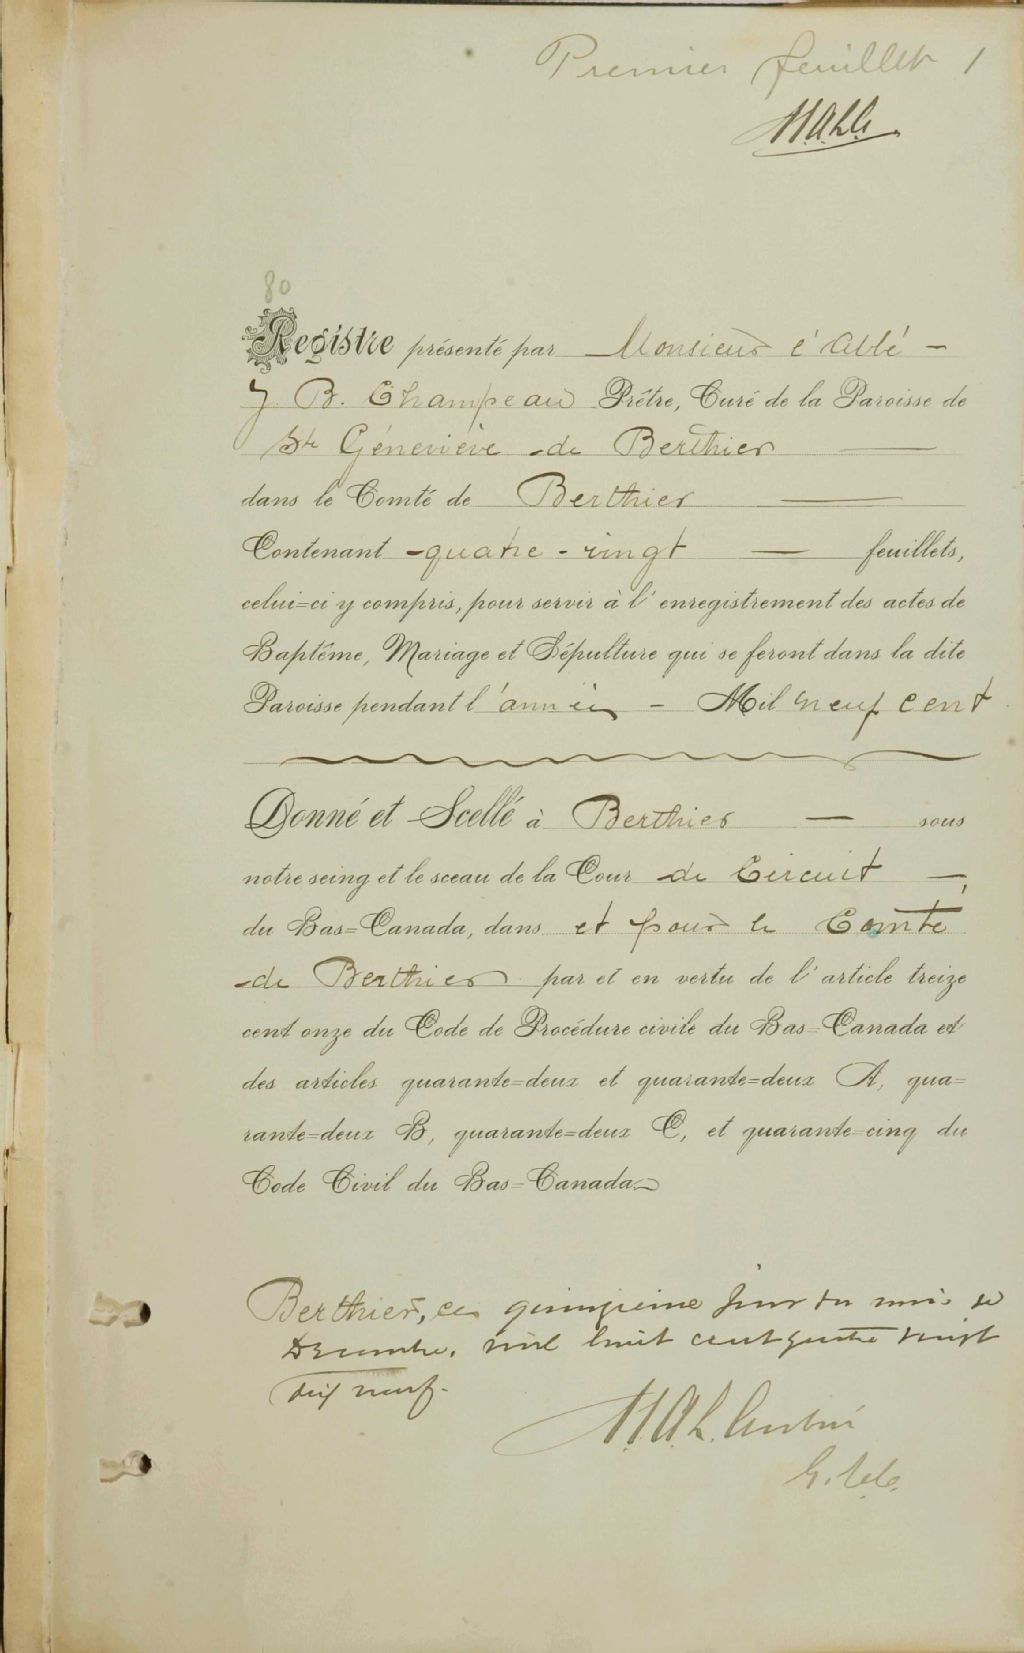 Premier feuillet 1
80
Registre présenté par Monsieur l'Abbé -
J. B. Champeau Prêtre, Curé de la Paroisse de
Ste Géneviève de Berthier
dans le Comté de Berthier
Contenant - quatre - vingt — feuillets,
celui=ci y compris, pour servir à l'enregistrement des actes de
Baptême, Mariage et Sépulture qui se feront dans la dite
Paroisse pendant l'année - Mil neuf cent
Donné et Scellé à Berthier — sous
notre seing et le sceau de la Cour de Circuit —,
du Bas=Canada, dans et pour le Comté
de Berthier par et en vertu de l'article treize
cent onze du Code de Procédure civile du Bas=Canada et
des articles quarante=deux et quarante=deux A, qua=
rante=deux B, quarante=deux C, et quarante=cinq du
Code Civil du Bas=Canada
Berthier, ce quinzième jour du mois de
Décembre, mil huit cent quatre vingt
dix neuf.